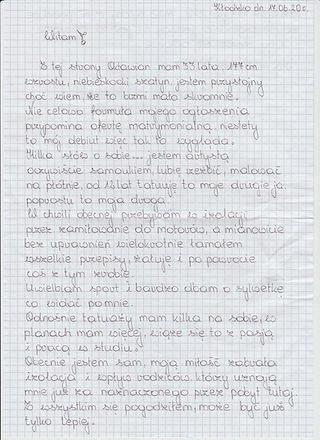 Kłodzko dn. 17.06.20r.
Witam
Z tej strony Oktawian mam 33 lata, 177cm
wzrostu, niebieskooki szatyn, jestem przystojny
choć wiem, że to brzmi mało skromnie.
Nie celowo formuła mojego ogłoszenia
przypomina ofertę matrymonialną, niestety
to mój debiut więc tak to wygląda.
Kilka słów o sobie... jestem artystą
oczywiście samoukiem, lubię rzeźbić, malować
na płótnie, od 12 lat tatuuję to moje drugie ja.
poprostu to moja droga.
W chwili obecnej przebywam w izolacji
przez zamiłowanie do motorów, a mianowicie
bez uprawnień wielokrotnie łamałem
wszelkie przepisy, żałuję i po powrocie
coś z tym zrobię.
Uwielbiam sport i bardzo dbam o sylwetkę
co widać po mnie.
Odnośnie tatuaży mam kilka na sobie, w
planach mam więcej, wiąże się to z pasją
i pracą w studiu.
Obecnie jestem sam, moją miłość zabrała
izolacja i wpływ rodziców, którzy uznają
mnie już za naznaczonego przez pobyt tutaj.
Z wszystkim się pogodziłem, może być już
tylko lepiej.